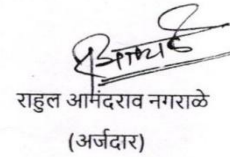 राहुल आमंदराव नगराळे
(अर्जदार)